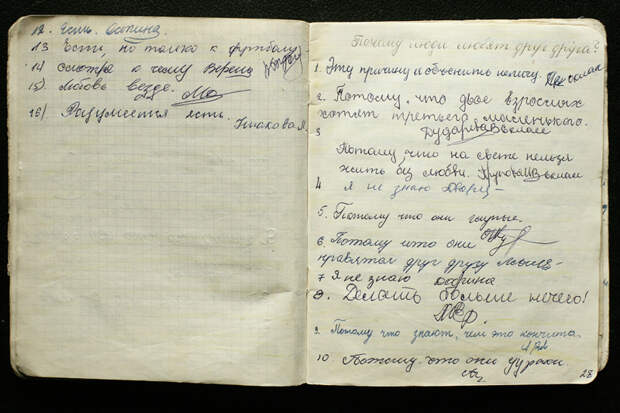 12. Есть. Осипина.
13 Есть, но только к футболу.
14 смотря к чему
15) Любовь везде.
16) Разумеется есть.
Ушакова Л.
Почему люди любят друг друга?
1. Эту причину я объяснить не могу.
2. Потому, что двое взрослых
хотят третьего маленького.
3
Потому, что на свете нельзя
жить без любви.
4 я не знаю
5. Потому что они глупые.
6 Потому што они
нравятся друг другу
7 Я не знаю
8. Делать больше нечего!
9. Потому что знают, чем это кончится.
10 Потому что они дураки
28